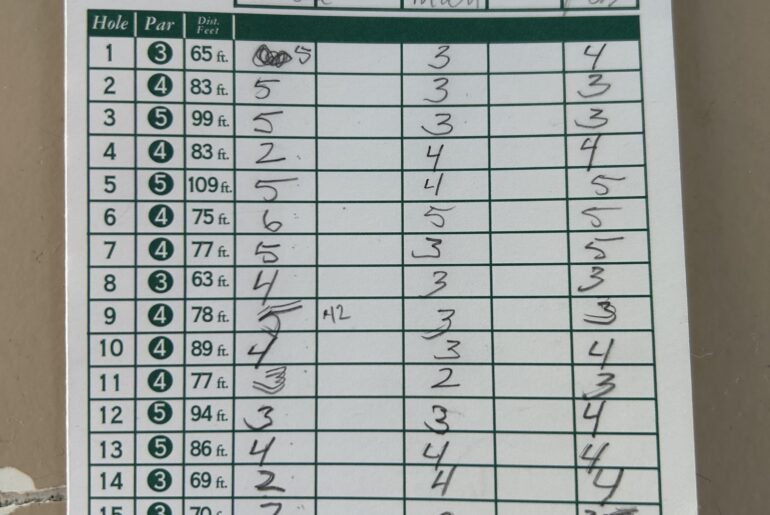 Hole Par Dist. Feet
1 3 65 ft. 5 3 4
2 4 83 ft. 5 3 3
3 5 99 ft. 5 3 3
4 4 83 ft. 2 4 4
5 5 109 ft. 5 4 5
6 4 75 ft. 6 5 5
7 4 77 ft. 5 3 5
8 3 63 ft. 4 3 3
9 4 78 ft. 5 42 3 3
10 4 89 ft. 4 3 4
11 4 77 ft. 3 2 3
12 5 94 ft. 3 3 4
13 5 86 ft. 4 4 4
14 3 69 ft. 2 4 4
15 3 70 ft.